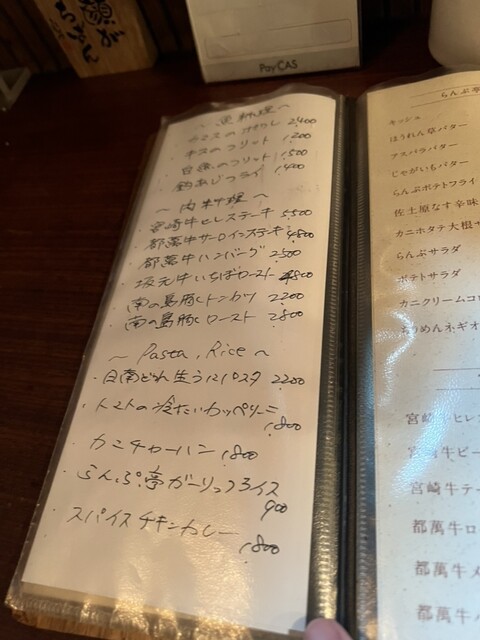 PayCAS
~ 魚料理 ~
2,400
・キスのフリット 1,200
・白魚のフリット 1,500
・釣あじフライ 1,400
~ 肉料理 ~
・宮崎牛ヒレステーキ 5,500
・都萬牛サーロインステーキ 4,800
・都萬牛ハンバーグ 2,500
・坂元牛いちぼロースト 4,800
・南の島豚ヒレトンカツ 2,200
・南の島豚ロースト 2,800
~ Pasta, Rice ~
・日南どれ生うにパスタ 2,200
・トマトの冷たいカッペリーニ
1,800
・カニチャーハン 1,800
・らんぷ亭ガーリックライス
900
・スパイスチキンカレー
1,800
らんぷ亭
キッシュ
ほうれん草バター
アスパラバター
じゃがいもバター
らんぷポテトフライ
佐土原なす辛味
カニホタテ大根サ
らんぷサラダ
ポテトサラダ
カニクリームコロ
宮崎牛ヒレ
宮崎牛ビー
宮崎牛テー
都萬牛ロ
都萬牛メ
都萬牛ハ